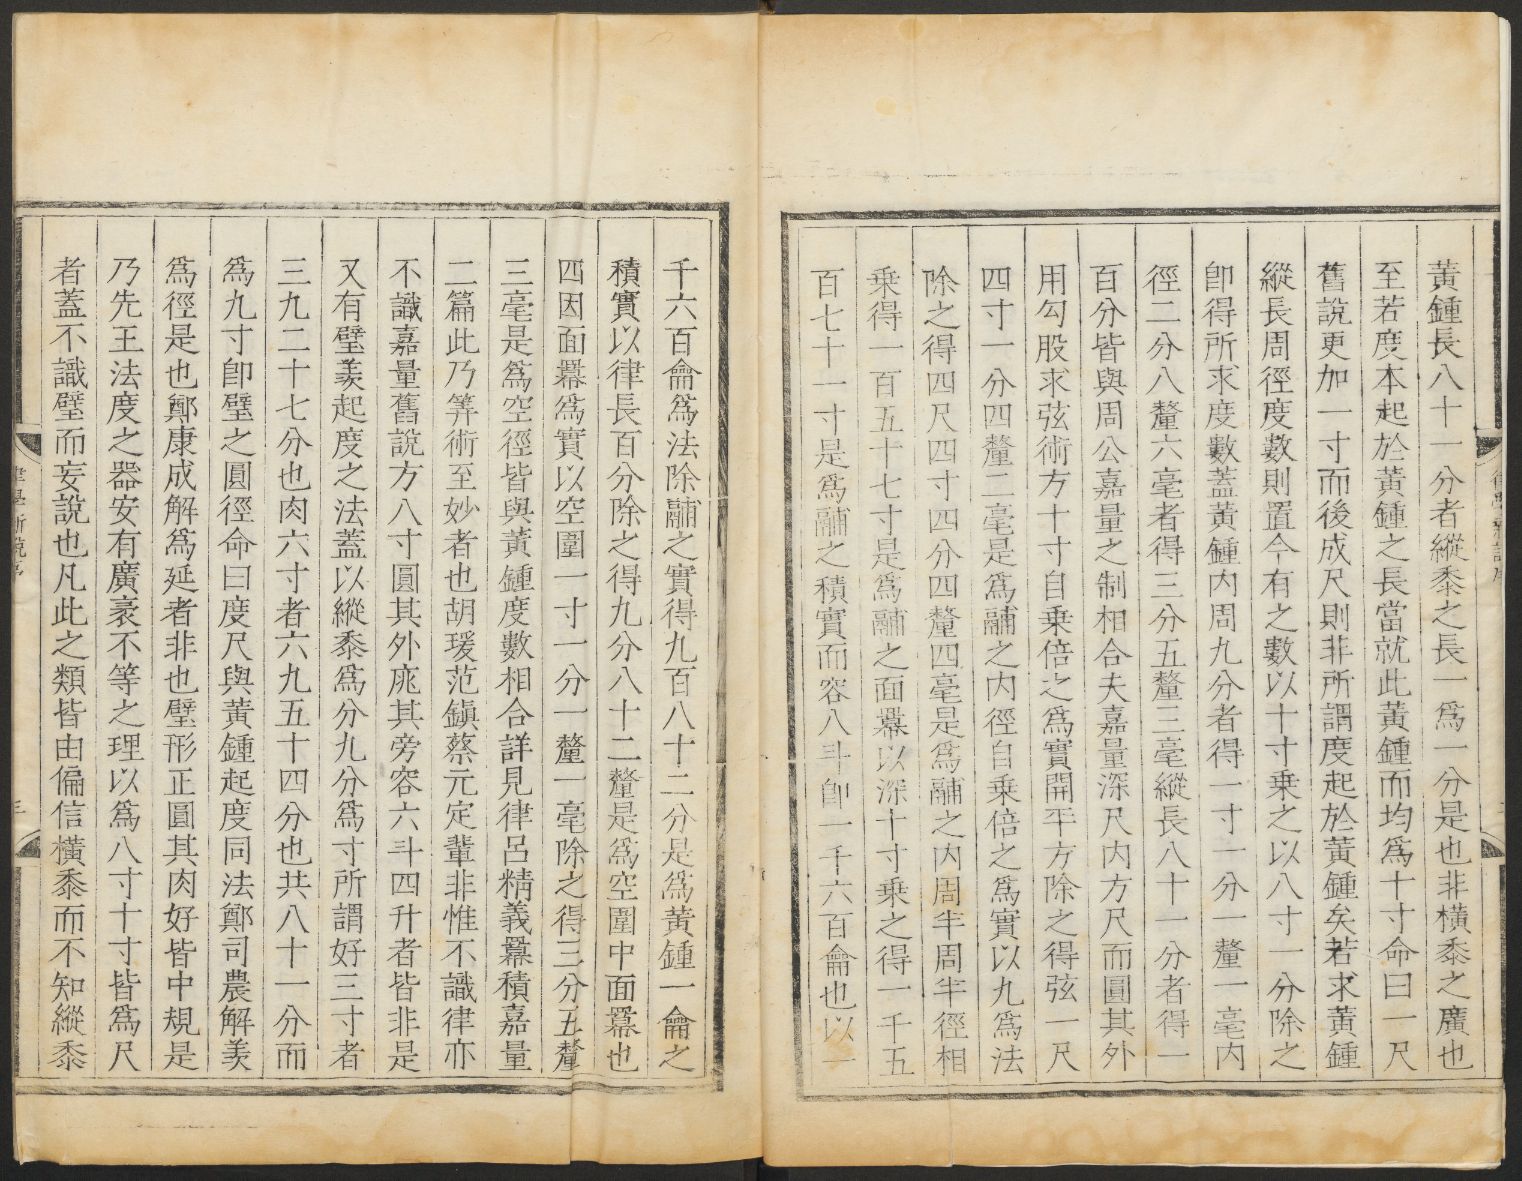 黃鍾長八十一分者縱黍之長一爲一分是也非橫黍之廣也
至若度本起於黃鍾之長當就此黃鍾而均爲十寸命曰一尺
舊說更加一寸而後成尺則非所謂度起於黃鍾矣若求黃鍾
縱長周徑度數則置今有之數以十寸乘之以八寸一分除之
卽得所求度數蓋黃鍾內周九分者得一寸一分一釐一毫內
徑二分八釐六毫者得三分五釐三毫縱長八十一分者得一
百分皆與周公嘉量之制相合夫嘉量深尺內方尺而圓其外
用勾股求弦術方十寸自乘倍之爲實開平方除之得弦一尺
四寸一分四釐二毫是爲鬴之內徑自乘倍之爲實以九爲法
除之得四尺四寸四分四釐四毫是爲鬴之內周半周半徑相
乘得一百五十七寸是爲鬴之面羃以深十寸乘之得一千五
百七十一寸是爲鬴之積實而容八斗卽一千六百龠也以一
千六百龠爲法除鬴之實得九百八十二分是爲黃鍾一龠之
積實以律長百分除之得九分八十二釐是爲空圍中面羃也
四因面羃爲實以空圍一寸一分一釐一毫除之得三分五釐
三毫是爲空徑皆與黃鍾度數相合詳見律呂精義羃積嘉量
二篇此乃筭術至妙者也胡瑗范鎮蔡元定輩非惟不識律亦
不識嘉量舊說方八寸圓其外庣其旁容六斗四升者皆非是
又有璧羨起度之法蓋以縱黍爲分九分爲寸所謂好三寸者
三九二十七分也肉六寸者六九五十四分也共八十一分而
爲九寸卽璧之圓徑命曰度尺與黃鍾起度同法鄭司農解羨
爲徑是也鄭康成解爲延者非也璧形正圓其肉好皆中規是
乃先王法度之器安有廣袤不等之理以爲八寸十寸皆爲尺
者蓋不識璧而妄說也凡此之類皆由偏信橫黍而不知縱黍